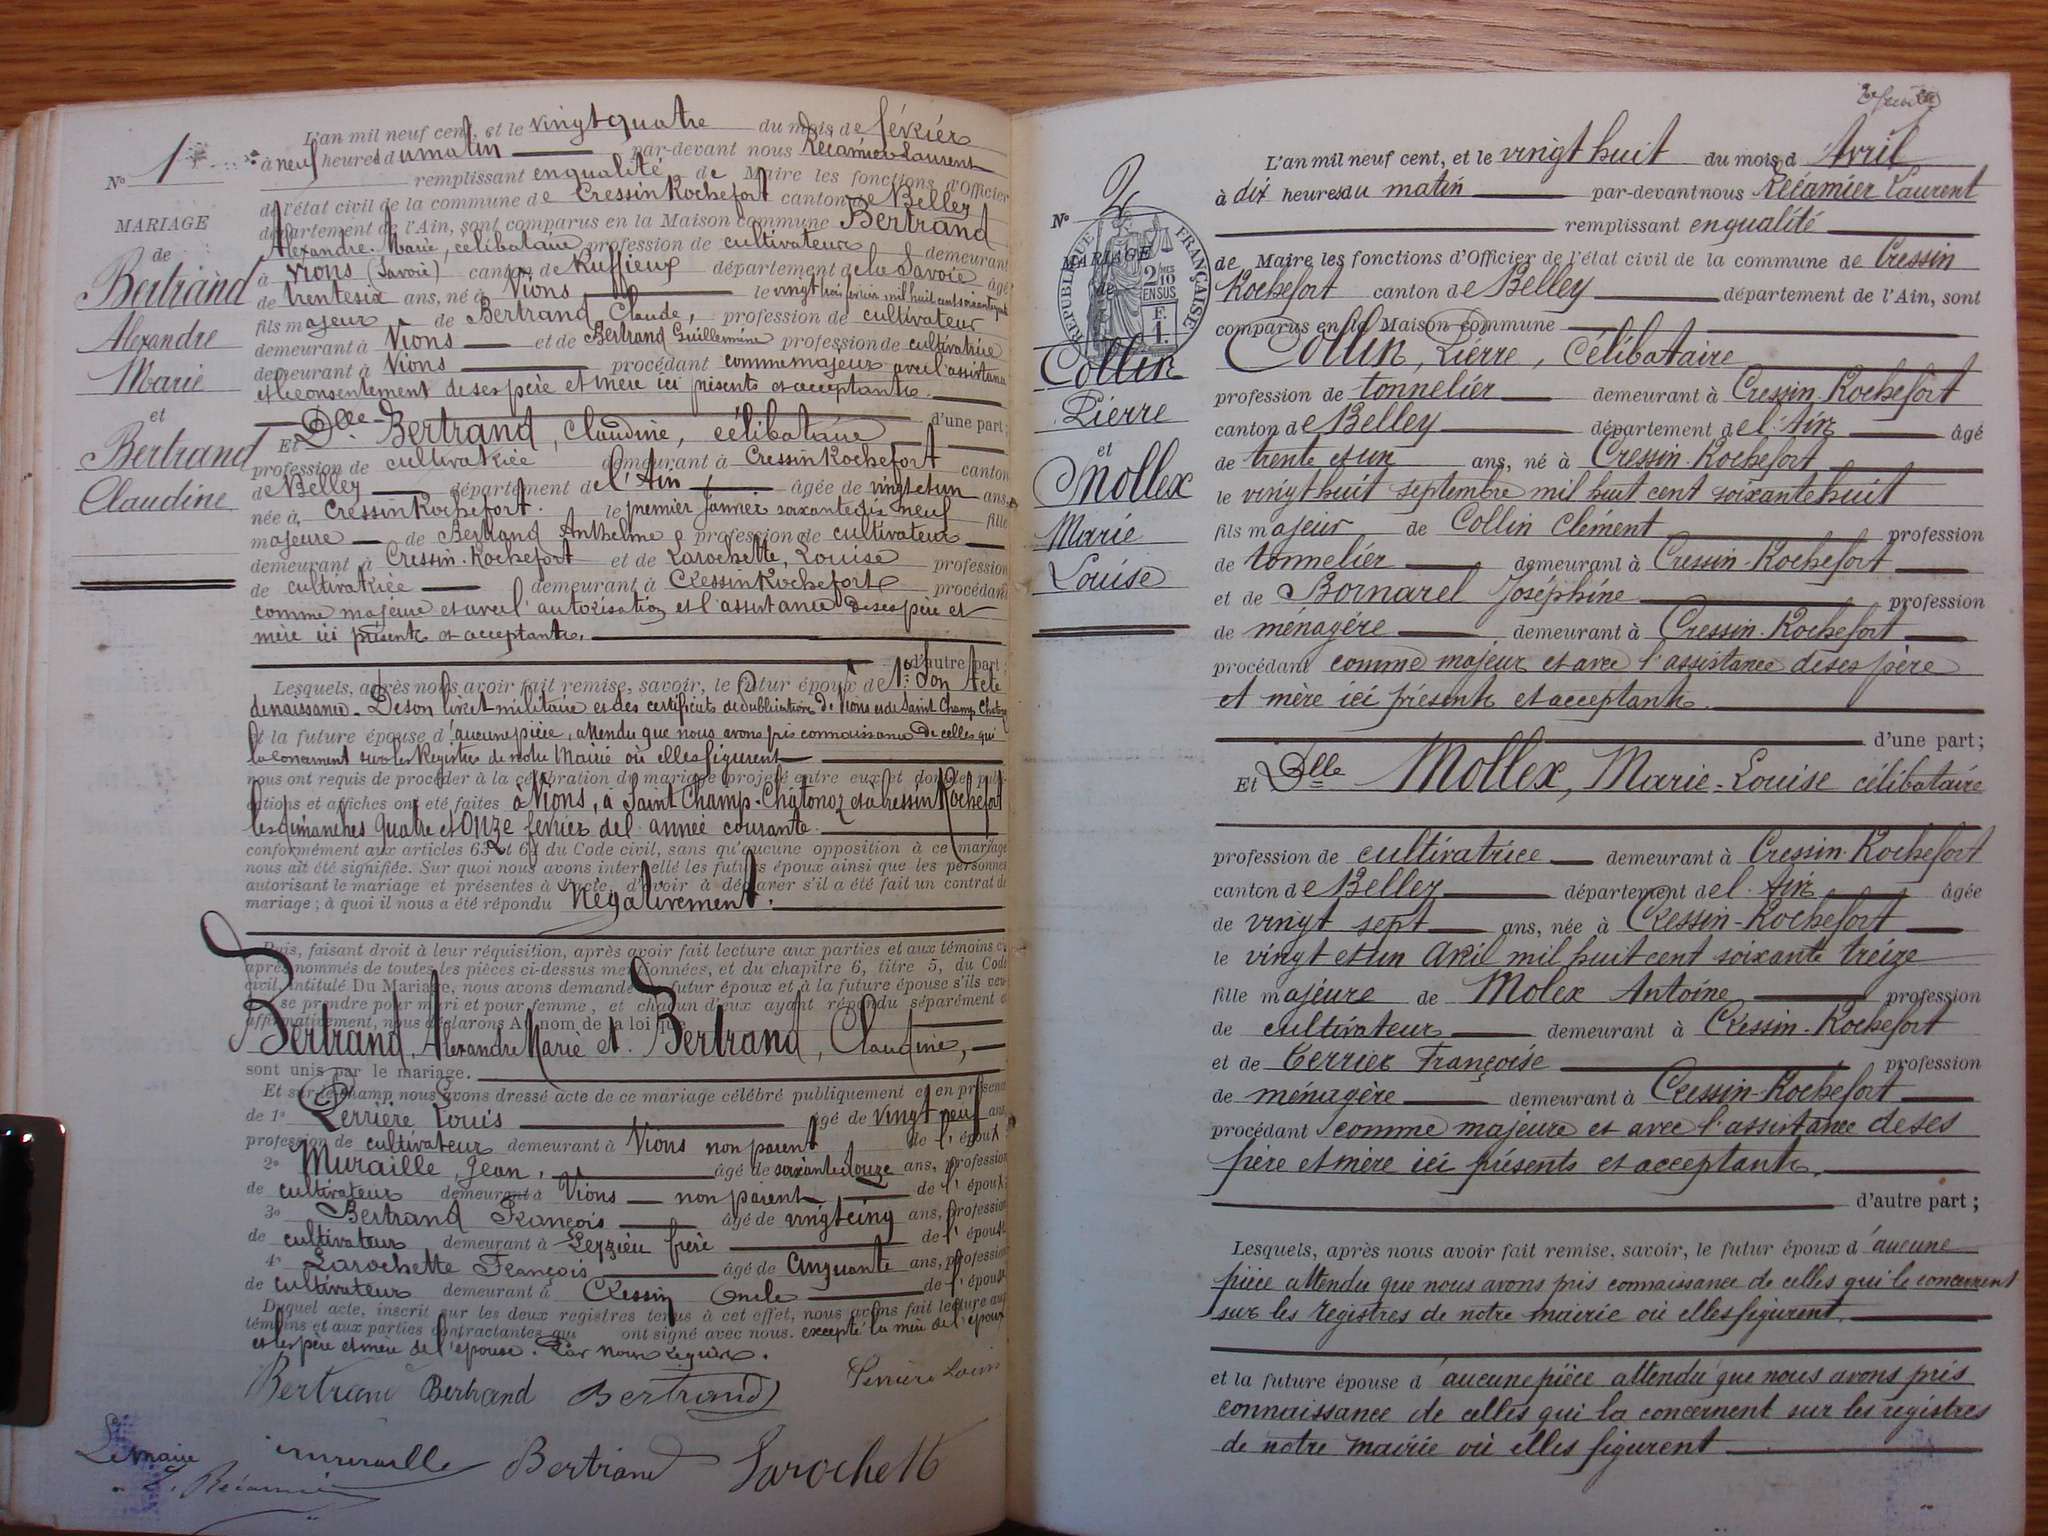 No 1
MARIAGE
de
Bertrand
Alexandre
Marie
et
Bertrand
Claudine
L'an mil neuf cent, et le vingt quatre du mois de février
à neuf heures du matin par-devant nous Récamier Laurent
remplissant en qualité de Maire les fonctions d'Officier
de l'état civil de la commune de Cressin Rochefort canton de Belley
département de l'Ain, sont comparus en la Maison commune Bertrand
Alexandre Marie, célibataire profession de cultivateur demeurant
à Vions (Savoie) canton de Ruffieux département de la Savoie âgé
de trente six ans, né à Vions le vingt trois février mil huit cent soixante quatre
fils majeur de Bertrand Claude, profession de cultivateur
demeurant à Vions et de Bertrand Guillemine profession de cultivatrice
demeurant à Vions procédant comme majeur avec l'assistance
et le consentement de ses père et mère ici présents et acceptants.
d'une part;
Et Dlle Bertrand, Claudine, célibataire
profession de cultivatrice demeurant à Cressin Rochefort canton
de Belley département de l'Ain âgée de vingt et un ans,
née à Cressin Rochefort. le premier janvier soixante dix neuf fille
majeure de Bertrand Anthelme profession de cultivateur
demeurant à Cressin-Rochefort et de Larochette, Louise profession
de cultivatrice demeurant à Cressin Rochefort procédant
comme majeure et avec l'autorisation et l'assistance de ses père et
mère ici présents et acceptants.
d'autre part;
Lesquels, après nous avoir fait remise, savoir, le futur époux de 1° Son Acte
de naissance. De son livret militaire et des certificats de Publication de Vions et de Saint Champ Chatonoz
Et la future épouse d'aucune pièce, attendu que nous avons pris connaissance de celles qui
la concernent sur les Registres de notre Mairie où elles figurent
nous ont requis de procéder à la célébration du mariage projeté entre eux et dont les publi-
cations et affiches ont été faites à Vions, à Saint Champ-Chatonoz et à Cressin Rochefort
les dimanches quatre et onze février de l'année courante.
conformément aux articles 63 et 64 du Code civil, sans qu'aucune opposition à ce mariage
nous ait été signifiée. Sur quoi nous avons interpellé les futurs époux ainsi que les personnes
autorisant le mariage et présentes à l'acte, d'avoir à déclarer s'il a été fait un contrat de
mariage; à quoi il nous a été répondu Négativement.
Puis, faisant droit à leur réquisition, après avoir fait lecture aux parties et aux témoins ci-
après nommés de toutes les pièces ci-dessus mentionnées, et du chapitre 6, titre 5, du Code
civil, intitulé Du Mariage, nous avons demandé au futur époux et à la future épouse s'ils veu-
se prendre pour mari et pour femme, et chacun d'eux ayant répondu séparément et
affirmativement, nous déclarons Au nom de la loi que
Bertrand, Alexandre Marie et Bertrand, Claudine,
sont unis par le mariage.
Et sur-le-champ nous avons dressé acte de ce mariage célébré publiquement et en présence
de 1° Perrière Louis âgé de vingt neuf ans
profession de cultivateur demeurant à Vions non parent de l'époux
2° Muraille Jean, âgé de soixante douze ans, profession
de cultivateur demeurant à Vions non parent de l'époux
3° Bertrand François âgé de vingt cinq ans, profession
de cultivateur demeurant à Leyzieu frère de l'épouse
4° Larochette François âgé de cinquante ans, profession
de cultivateur demeurant à Cressin Oncle de l'épouse
Duquel acte, inscrit sur les deux registres tenus à cet effet, nous avons fait lecture aux
témoins et aux parties contractantes qui ont signé avec nous. excepté la mère de l'époux
et les père et mère de l'épouse. De ce requis.
Bertrand Bertrand Bertrand Perrière Louis
Le Maire muraille Bertrand Larochette
L. Récamier
No 2
MARIAGE
de
RÉPUBLIQUE FRANÇAISE
2/10 EN SUS
F. 1.
Collin
Pierre
et
Mollex
Marie
Louise
L'an mil neuf cent, et le vingt huit du mois d'Avril
à dix heures du matin par-devant nous Récamier Laurent
remplissant en qualité
de Maire les fonctions d'Officier de l'état civil de la commune de Cressin
Rochefort canton de Belley département de l'Ain, sont
comparus en la Maison commune
Collin, Pierre, Célibataire
profession de tonnelier demeurant à Cressin-Rochefort
canton de Belley département de l'Ain âgé
de trente et un ans, né à Cressin-Rochefort
le vingt huit septembre mil huit cent soixante huit
fils majeur de Collin Clément profession
de tonnelier demeurant à Cressin-Rochefort
et de Bornarel Joséphine profession
de ménagère demeurant à Cressin-Rochefort
procédant comme majeur et avec l'assistance de ses père
et mère ici présents et acceptants.
d'une part;
Et Dlle Mollex, Marie-Louise célibataire
profession de cultivatrice demeurant à Cressin-Rochefort
canton de Belley département de l'Ain âgée
de vingt sept ans, née à Cressin-Rochefort
le vingt et un Avril mil huit cent soixante treize
fille majeure de Molex Antoine profession
de cultivateur demeurant à Cressin-Rochefort
et de Terrier Françoise profession
de ménagère demeurant à Cressin-Rochefort
procédant comme majeure et avec l'assistance de ses
père et mère ici présents et acceptants.
d'autre part;
Lesquels, après nous avoir fait remise, savoir, le futur époux d'aucune
pièce attendu que nous avons pris connaissance de celles qui le concernent
sur les registres de notre mairie où elles figurent.
et la future épouse d'aucune pièce attendu que nous avons pris
connaissance de celles qui la concernent sur les registres
de notre mairie où elles figurent